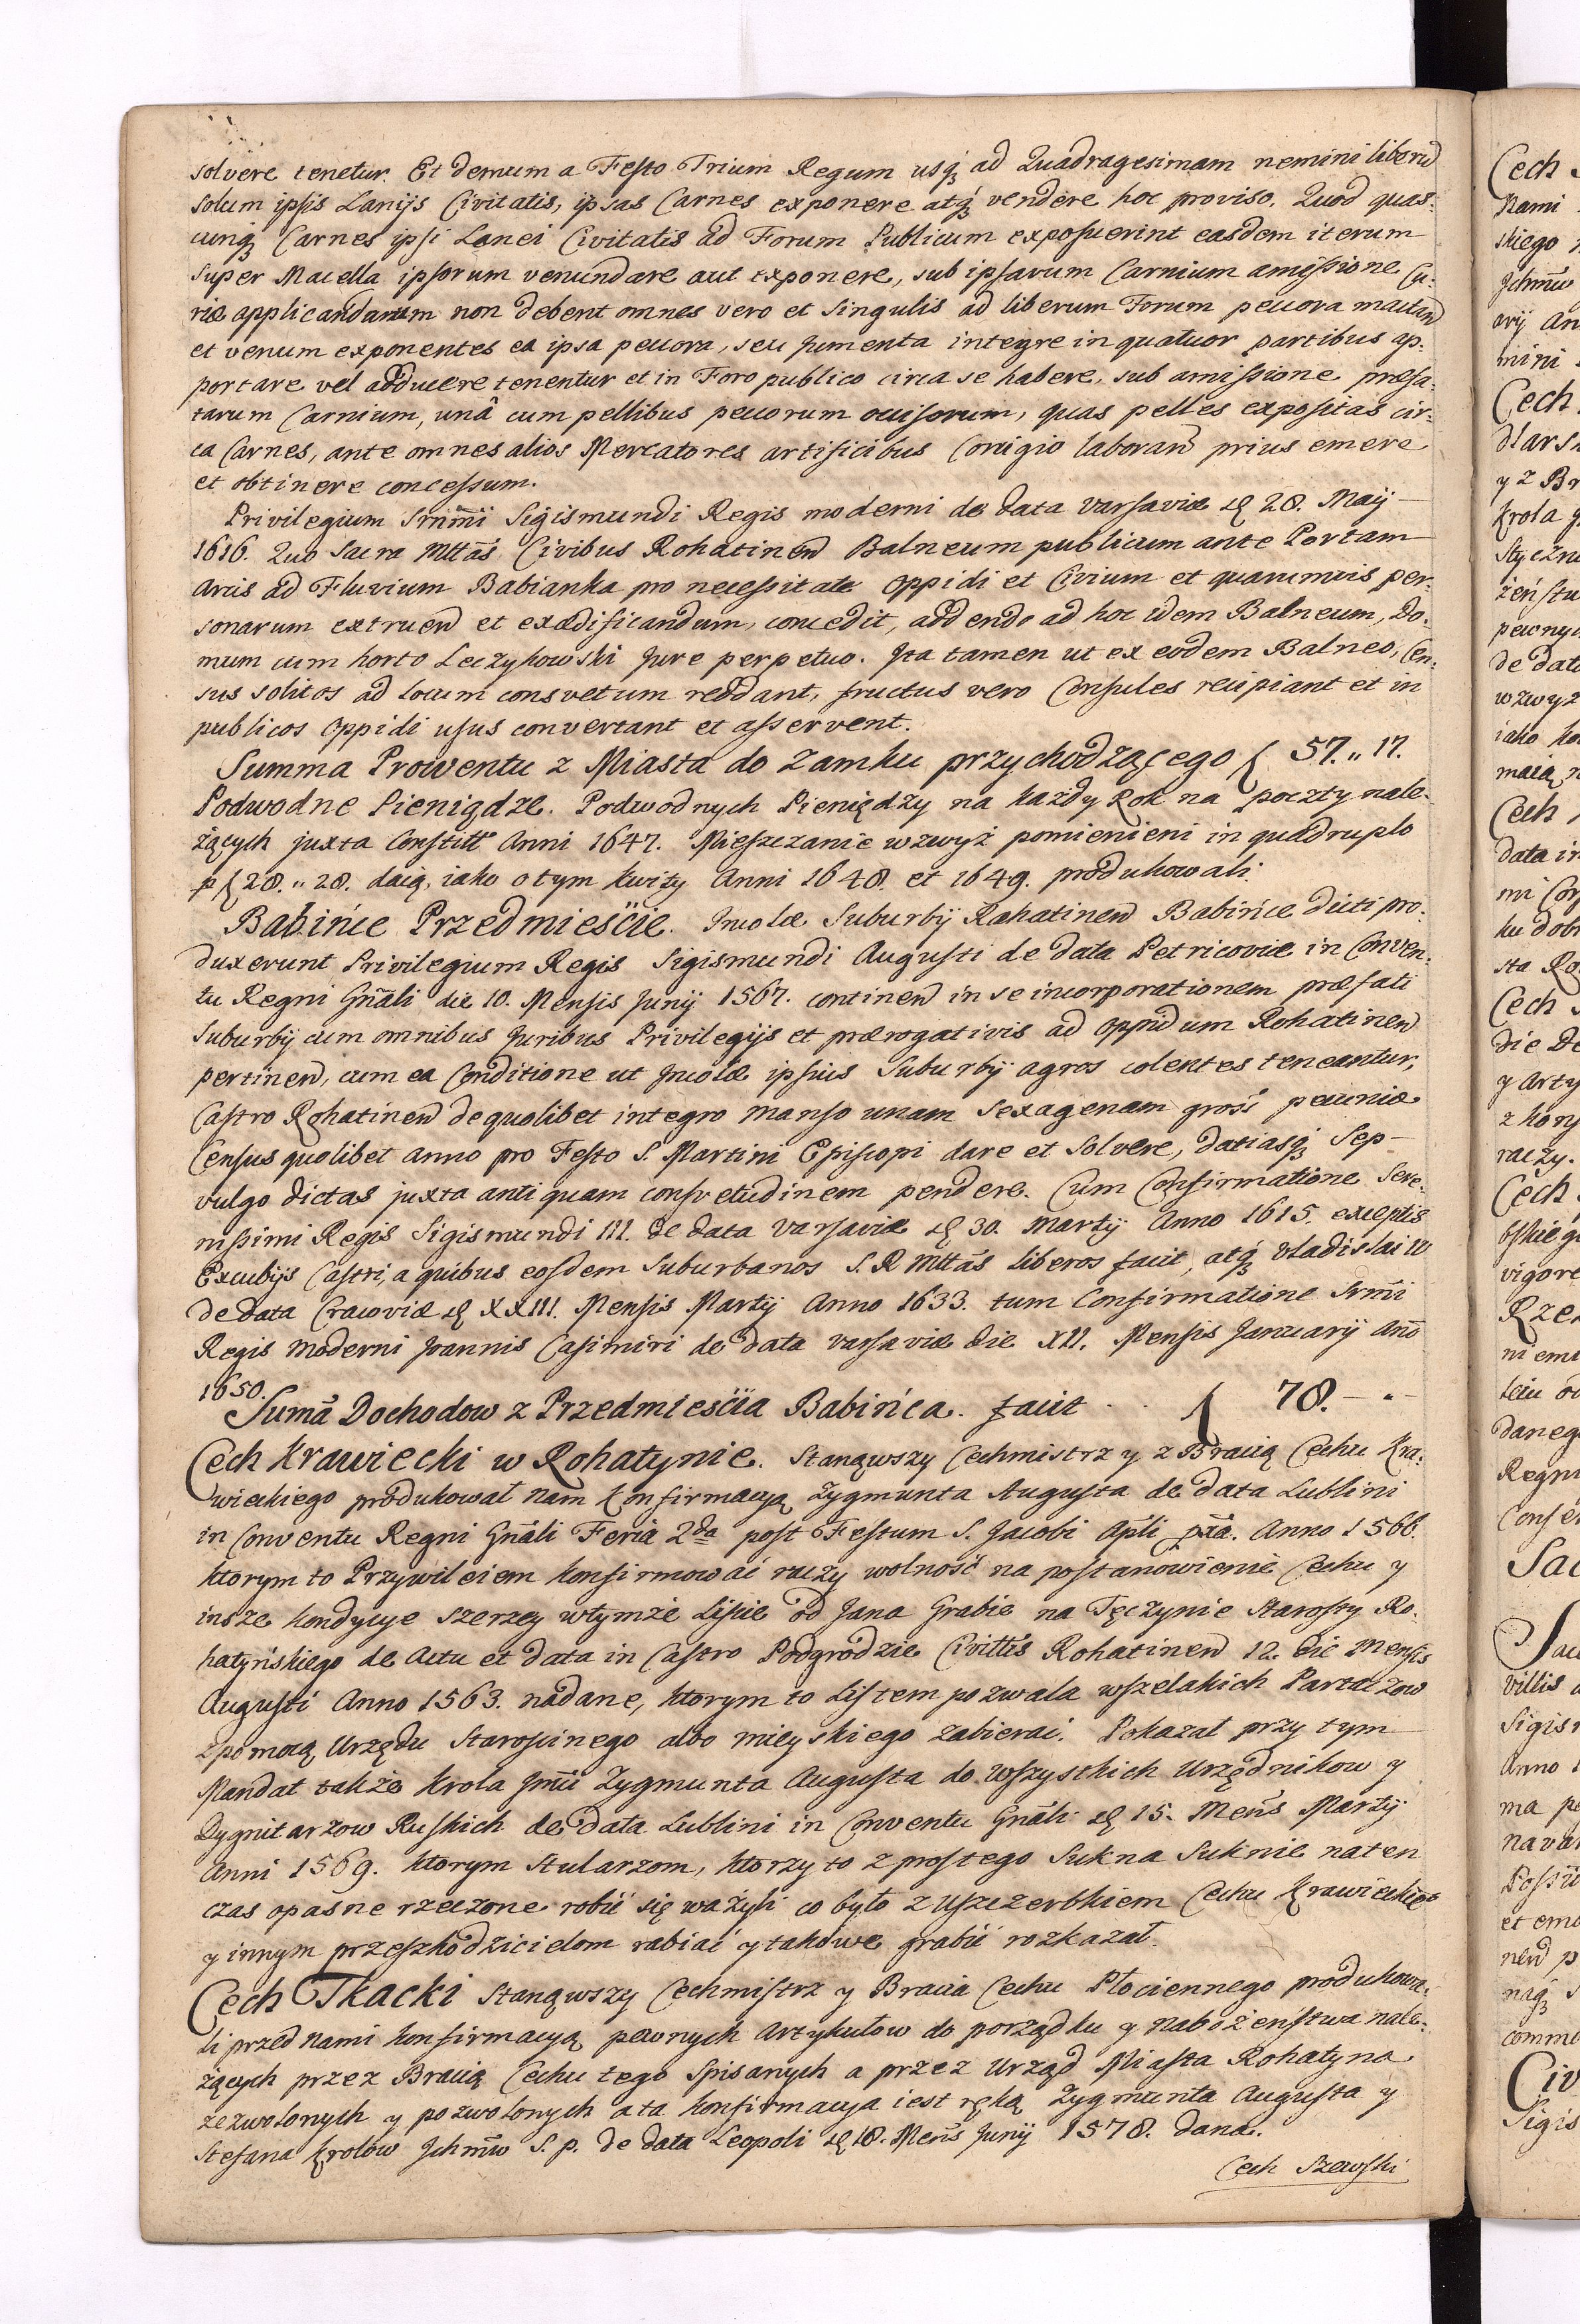 solvere tenetur. Et demum a Festo Trium Regum usq; ad Quadragesimam nemini liberū
solum ipsis Lanijs Civitatis, ipsas Carnes exponere atq; vendere hoc proviso. Quod quas-
cunq; Carnes ipsi Lanei Civitatis ad Forum Publicum exposuerint easdem iterum
super Macella ipsorum venundare aut exponere, sub ipsarum Carnium amissione Cu-
riæ applicandarum non debent omnes vero et singulis ad liberum Forum pecora mactan
et venum exponentes ea ipsa pecora, seu Jumenta integre in quatuor partibus ap-
portare vel adducere tenentur et in Foro publico circa se habere, sub amissione præfa-
tarum Carnium, unâ cum pellibus pecorum occisorum, quas pelles expositas cir-
ca Carnes, ante omnes alios Mercatores artificibus Corrigio laboran prius emere
et obtinere concessum.
Privilegium Srnm̃i Sigismundi Regis moderni de data Varsaviæ d 28. Maij
1616. Quo Sacra Mttãs Civibus Rohatinen Balneum publicum ante Portam
Arcis ad Fluvium Babianka pro necessitate Oppidi et Civium et quarumvis per-
sonarum extruen et exædificandum, concedit, addendo ad hoc idem Balneum, Do-
mum cum horto Leczykowski Jure perpetuo. Ita tamen ut ex eodem Balneo, Cen-
sus solitos ad locum consvetum reddant, fructus vero Consules recipiant et in
publicos Oppidi usus convertant et asservent.
Summa Prowentu z Miasta do Zamku przychodzącego f 57. " 17.
Podwodne Pieniądze. Podwodnych Pieniędzy na każdy Rok na poczty nale-
żących juxta Constitt Anni 1647. Mieszczanie wzwyż pomienieni in quadruplo
p f 28. " 28. daią, iako o tym kwity Anni 1648. et 1649. produkowali.
Babińce Przedmieście. Incolæ Suburbij Rahatinen Babińce dicti pro-
duxerunt Privilegium Regis Sigismundi Augusti de data Petricoviæ in Conven-
tu Regni Gñali die 10. Mensis Junij 1567. continen in se incorporationem præfati
Suburbij cum omnibus Juribus Privilegijs et prærogativis ad Oppidum Rohatinen
pertinen, cum ea Conditione ut Incolæ ipsius Suburbij agros colentes teneantur,
Castro Rohatinen de quolibet integro manso unam Sexagenam grosś pecuniæ
Census quolibet anno pro Festo S. Martini Episcopi dare et Solvere, datiasq; Sep
vulgo dictas juxta antiquam consvetudinem pendere. Cum Confirmatione Sere-
nissimi Regis Sigismundi III. de data Varsaviæ d 30. Martij Anno 1615. exceptis
Excubijs Castri, a quibus eosdem Suburbanos S. R Mttãs liberos facit, atq; Vladislai IV
de data Cracoviæ d XXIII. Mensis Martij Anno 1633. tum Confirmatione Srm̃i
Regis moderni Joannis Casimiri de data Varsaviæ die XII. Mensis Januarij Anõ
1650.
Sumã Dochodow z Przedmieścia Babińca. facit . . f 78. – " –
Cech Krawiecki w Rohatynie. Stanąwszy Cechmistrz y z Bracią Cechu Kra-
wieckiego produkował nam konfirmacyą Zygmunta Augusta de data Lublini
in Conventu Regni Gñali Feria 2da post Festum S. Jacobi Apli pxã. Anno 1566.
ktorym to Przywileiem konfirmować raczy wolność na postanowienie Cechu y
insze kondycye szerzey w tymże Liście od Jana Grabie na Tęczynie Starosty Ro-
hatyńskiego de Actu et data in Castro Podgrodzie Civittis Rohatinen 12. die Mensis
Augusti Anno 1563. nadane, ktorym to Listem pozwala wszelakich Partaczow
z pomocą Urzędu Starościnego albo mieyskiego zabierać. Pokazał przy tym
Mandat także Krola Jm̃ci Zygmunta Augusta do Wszystkich Urzędnikow y
Dygnitarzow Ruskich de data Lublini in Conventu Gñali d 15. Mens Martij
Anni 1569. ktorym Stularzom, ktorzy to z prostego Sukna Suknie na ten
czas opaśne rzeczone robić się ważyli co było z Uszczerbkiem Cechu Krawieckieº
y innym przeszkodzicielom rabiać y takowe grabić rozkazał.
Cech Tkacki Stanąwszy Cechmistrz y Bracia Cechu Płociennego produkowa-
li przed nami konfirmacyą pewnych Artykułow do porządku y nabożeństwa nale-
żących przez Bracią Cechu tego Spisanych a przez Urząd Miasta Rohatyna
zezwolonych y pozwolonych a ta konfirmacya iest ręką Zygmunta Augusta y
Stefana Krolow Ichm̃w S. p. de data Leopoli d 18. Mens Junij 1578. dana.
Cech Szewski